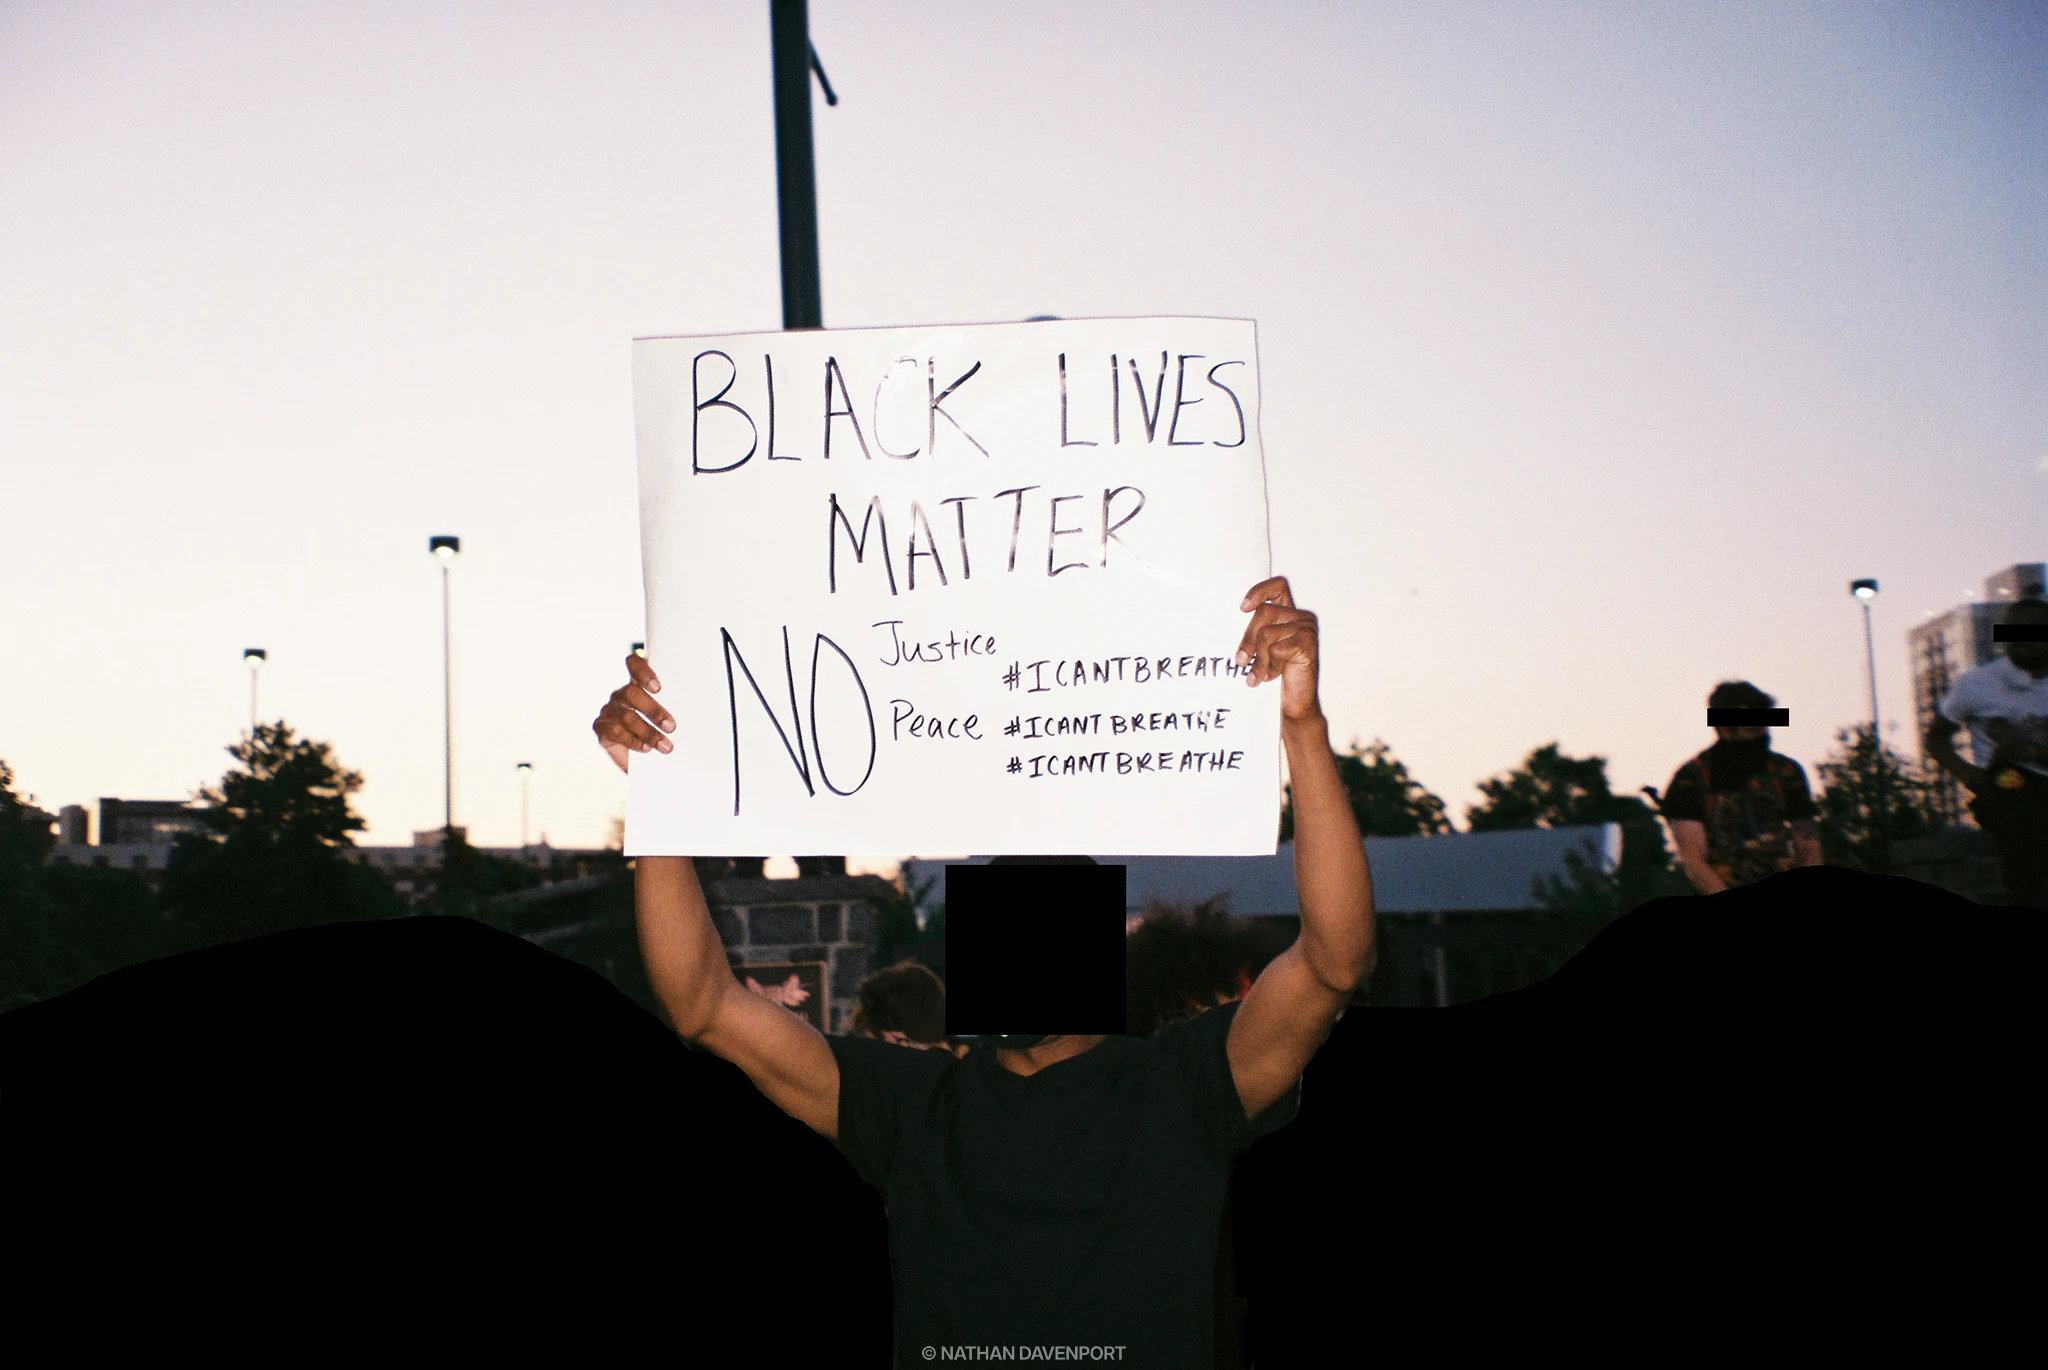 BLACK LIVES
MATTER
NO Justice
Peace
#ICANTBREATHE
#ICANTBREATHE
#ICANTBREATHE
© NATHAN DAVENPORT